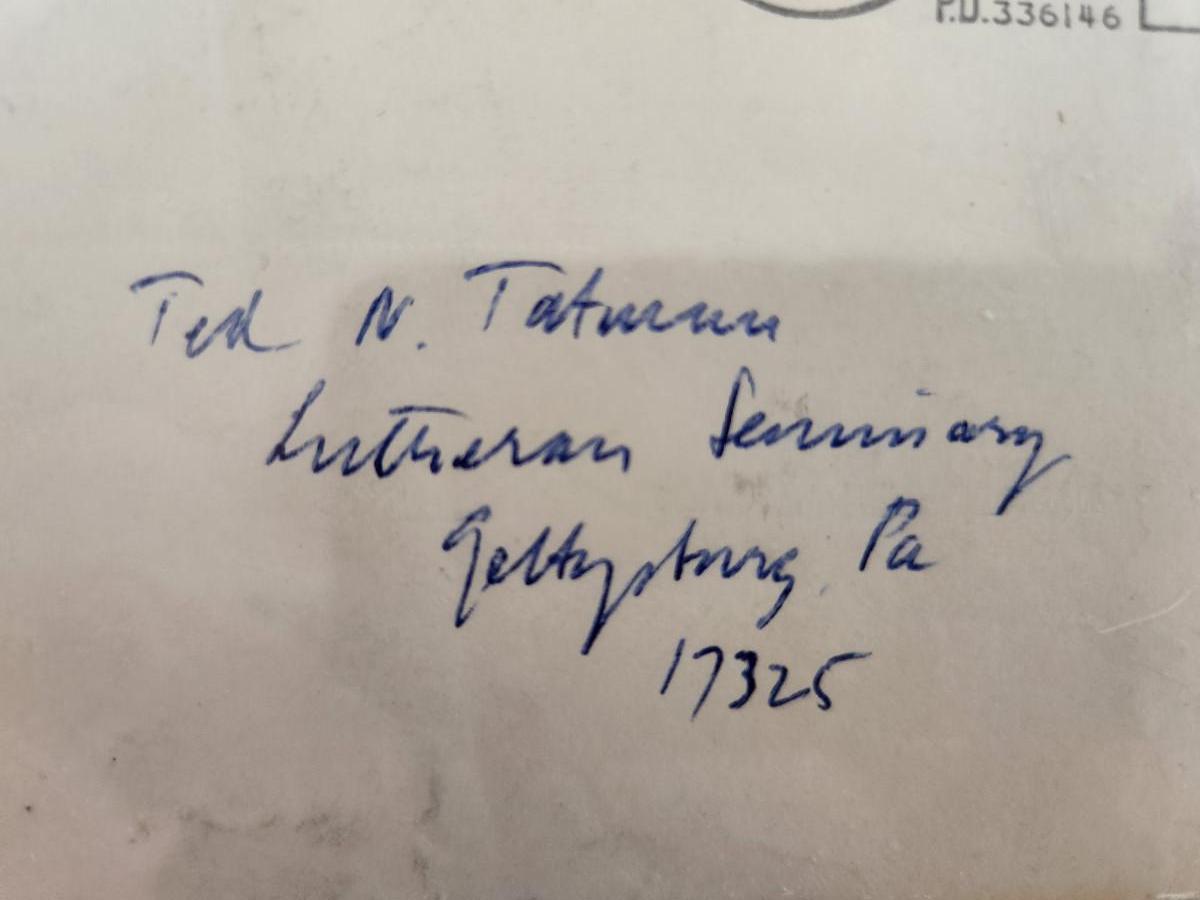 P.U.336146
Ted N. Tatman
Lutheran Seminary
Gettysburg, Pa
17325